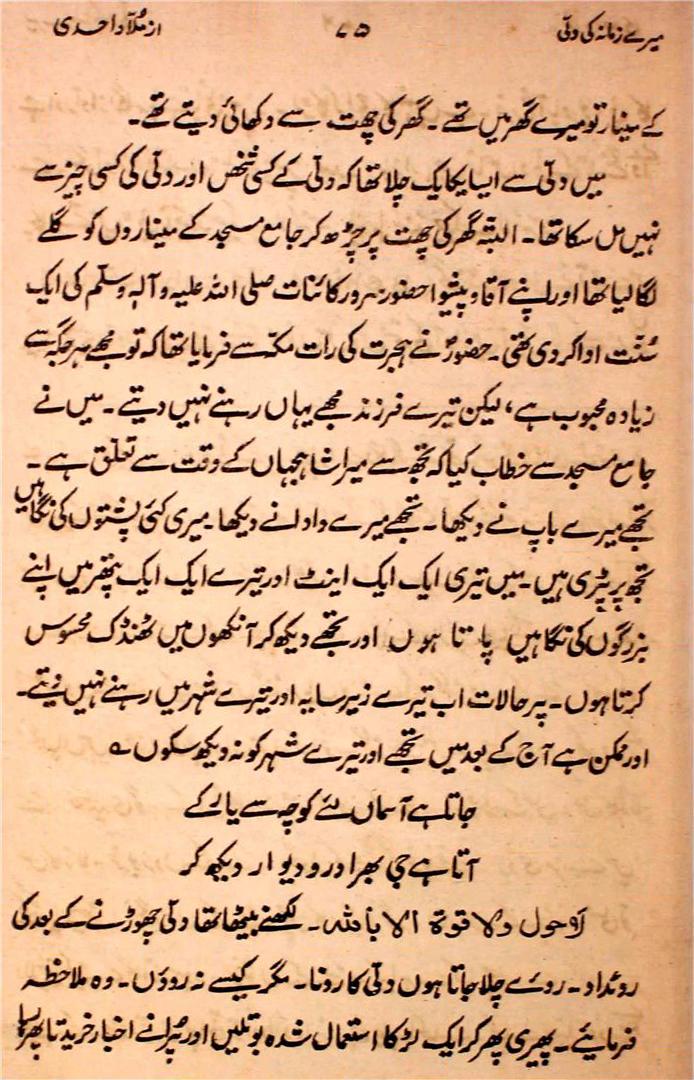 میرے زمانہ کی دلّی ۷۵ از مُلّا واحدی
کے مینار تو میرے گھر میں تھے۔ گھر کی چھت سے دکھائی دیتے تھے۔
میں دلّی سے ایسا یکایک چلا تھا کہ دلّی کے کسی شخص اور دلّی کی کسی چیز سے
نہیں مل سکا تھا۔ البتّہ گھر کی چھت پر چڑھ کر جامع مسجد کے میناروں کو گلے
لگا لیا تھا اور اپنے آقا و پیشوا حضور سرورِ کائنات صلی اللہ علیہ وآلہٖ وسلّم کی ایک
سُنّت ادا کر دی تھی۔ حضورؐ نے ہجرت کی رات مکّہ سے فرمایا تھا کہ تو مجھے ہر جگہ سے
زیادہ محبوب ہے، لیکن تیرے فرزند مجھے یہاں رہنے نہیں دیتے۔ میں نے
جامع مسجد سے خطاب کیا کہ تجھ سے میرا شاہجہاں کے وقت سے تعلّق ہے۔
تجھے میرے باپ نے دیکھا۔ تجھے میرے دادا نے دیکھا۔ میری کئی پشتوں کی نگاہیں
تجھ پر پڑی ہیں۔ میں تیری ایک ایک اینٹ اور تیرے ایک ایک پتھر میں اپنے
بزرگوں کی نگاہیں پاتا ہوں اور تجھے دیکھ کر آنکھوں میں ٹھنڈک محسوس
کرتا ہوں۔ پر حالات اب تیرے زیرِ سایہ اور تیرے شہر میں رہنے نہیں دیتے۔
اور ممکن ہے آج کے بعد میں تجھے اور تیرے شہر کو نہ دیکھ سکوں ؎
جاتا ہے آسماں لئے کوچہ سے یار کے
آتا ہے جی بھرا در و دیوار دیکھ کر
لاحول ولا قوۃ الا باللہ۔ لکھنے بیٹھا تھا دلّی چھوڑنے کے بعد کی
روئداد۔ روئے چلا جاتا ہوں دلّی کا رونا۔ مگر کیسے نہ روؤں۔ وہ ملاحظہ
فرمایئے۔ پھیری پھر کر ایک لڑکا استعمال شدہ بوتلیں اور پُرانے اخبار خریدتا پھر رہا